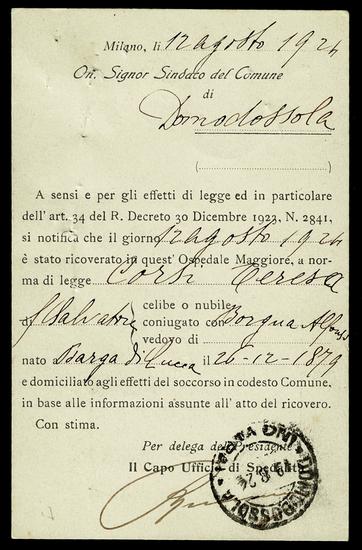 Milano, li 12 agosto 1924
On. Signor Sindaco del Comune
di
Domodossola
(
)
A sensi e per gli effetti di legge ed in particolare
dell' art. 34 del R. Decreto 30 Dicembre 1923, N. 2841,
si notifica che il giorno 12 agosto 1924
è stato ricoverato in quest' Ospedale Maggiore, a nor-
ma di legge Corsi Teresa
celibe o nubile
di Salvatore coniugato con Borgna Alfonso
vedovo di
nato a Barga di Lucca il 26-12-1879
e domiciliato agli effetti del soccorso in codesto Comune,
in base alle informazioni assunte all' atto del ricovero.
Con stima.
Per delega del Presidente
Il Capo Ufficio di Spedalità
DOMODOSSOLA